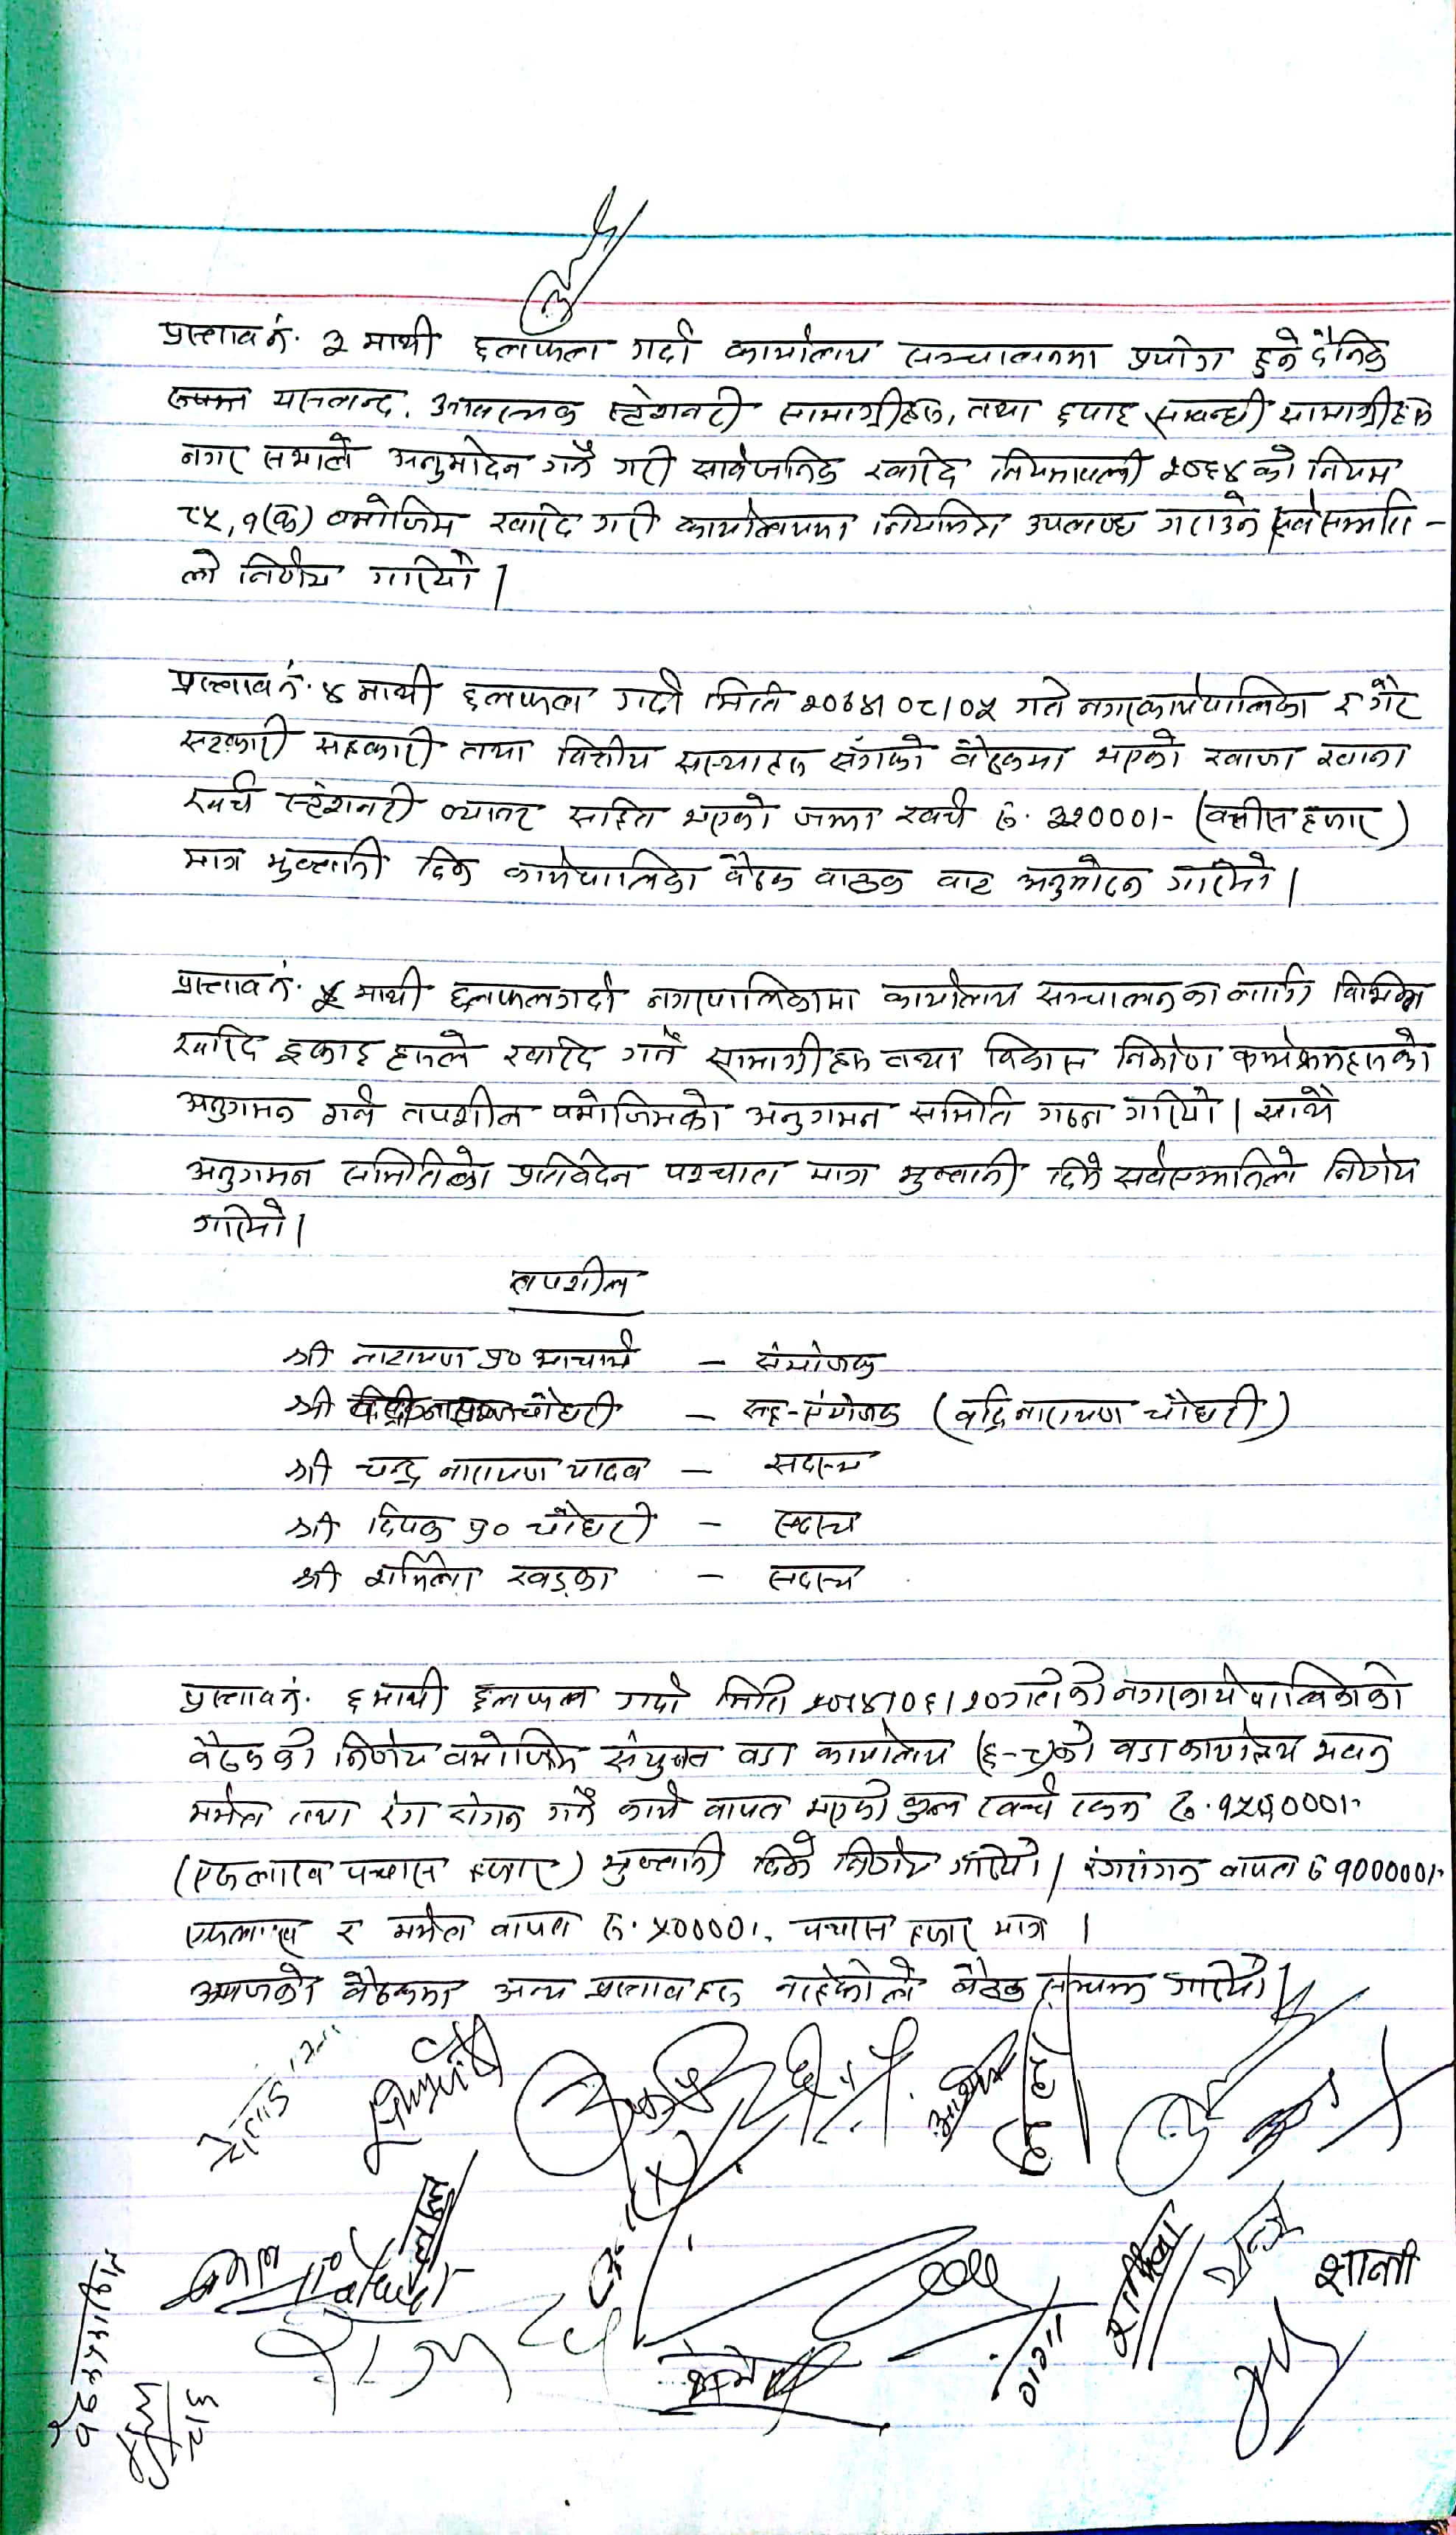 प्रस्ताव नं. ३ माथी छलफल गर्दा कार्यालय सञ्चालनमा प्रयोग हुने दैनिक
मसलन्द, स्टेशनरी सामाग्रीहरु, तथा छपाइ सम्वन्धी सामाग्रीहरु
नगर सभाले अनुमोदन गर्ने गरी सार्वजनिक खरिद नियमावली २०६४ को नियम
८५,१(क) वमोजिम खरिद गरी कार्यालयमा नियमित उपलव्ध गराउने सर्वसम्मति-
ले निर्णय गरियो ।
प्रस्ताव नं. ४ माथी छलफल गर्दा मिति २०७४।०८।०५ गते नगरकार्यपालिका र गैर
सरकारी सहकारी तथा वित्तीय संस्थाहरु सँगको वैठकमा भएको खाजा खाना
खर्च स्टेशनरी व्यानर सहित भएको जम्मा खर्च रु. ३२०००।- (वत्तीस हजार)
मात्र भुक्तानी दिने कार्यपालिका वैठक वाट अनुमोदन गरियो ।
प्रस्ताव नं. ५ माथी छलफल गर्दा नगरपालिकामा कार्यालय सञ्चालनका लागि विभिन्न
खरिद इकाइ हरुले खरिद गर्ने सामाग्रीहरु तथा विकास निर्माण कार्यक्रमहरुको
अनुगमन गर्न तपशील वमोजिमको अनुगमन समिति गठन गरियो । साथै
अनुगमन समितिको प्रतिवेदन पश्चात मात्र भुक्तानी दिने सर्वसम्मतिले निर्णय
गरियो ।
तपशील
श्री नारायण प्र० आचार्य – संयोजक
श्री चौधरी – सह-संयोजक (वद्रिनारायण चौधरी)
श्री चन्द्र नारायण यादव – सदस्य
श्री दिपक प्र० चौधरी – सदस्य
श्री शर्मिला खड्का – सदस्य
प्रस्ताव नं. ६ माथी छलफल गर्दा मिति २०७४।०६।२० गतेको नगरकार्यपालिकाको
वैठकको निर्णय वमोजिम संयुक्त वडा कार्यालय को वडा कार्यालय भवन
मर्मत तथा रंग रोगन गर्ने कार्य वापत भएको कुल खर्च रकम रु. १५००००।-
(एकलाख पच्चास हजार) भुक्तानी दिने निर्णय गरियो । रंगरोगन वापत रु १०००००।-
एकलाख र मर्मत वापत रु. ५००००।, पचास हजार मात्र ।
आजको वैठकमा अन्य प्रस्ताव हरु नरहेकोले वैठक सम्पन्न गरियो ।
शान्ती
गंगा